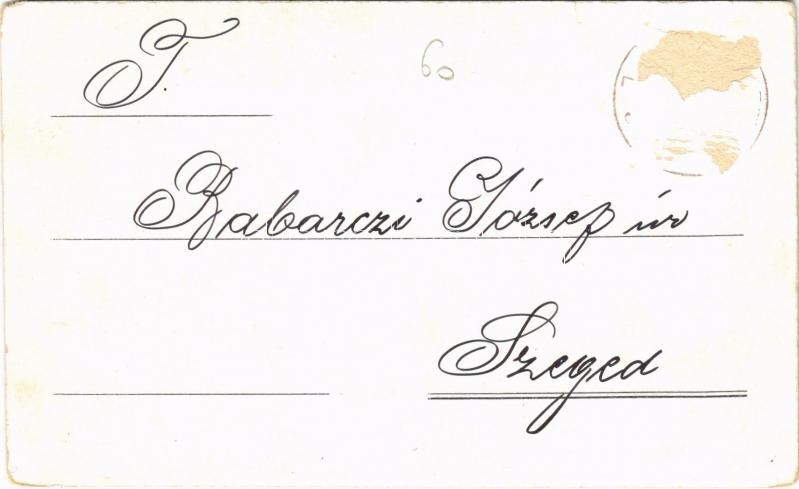 T.
60
Babarczi József úr
Szeged